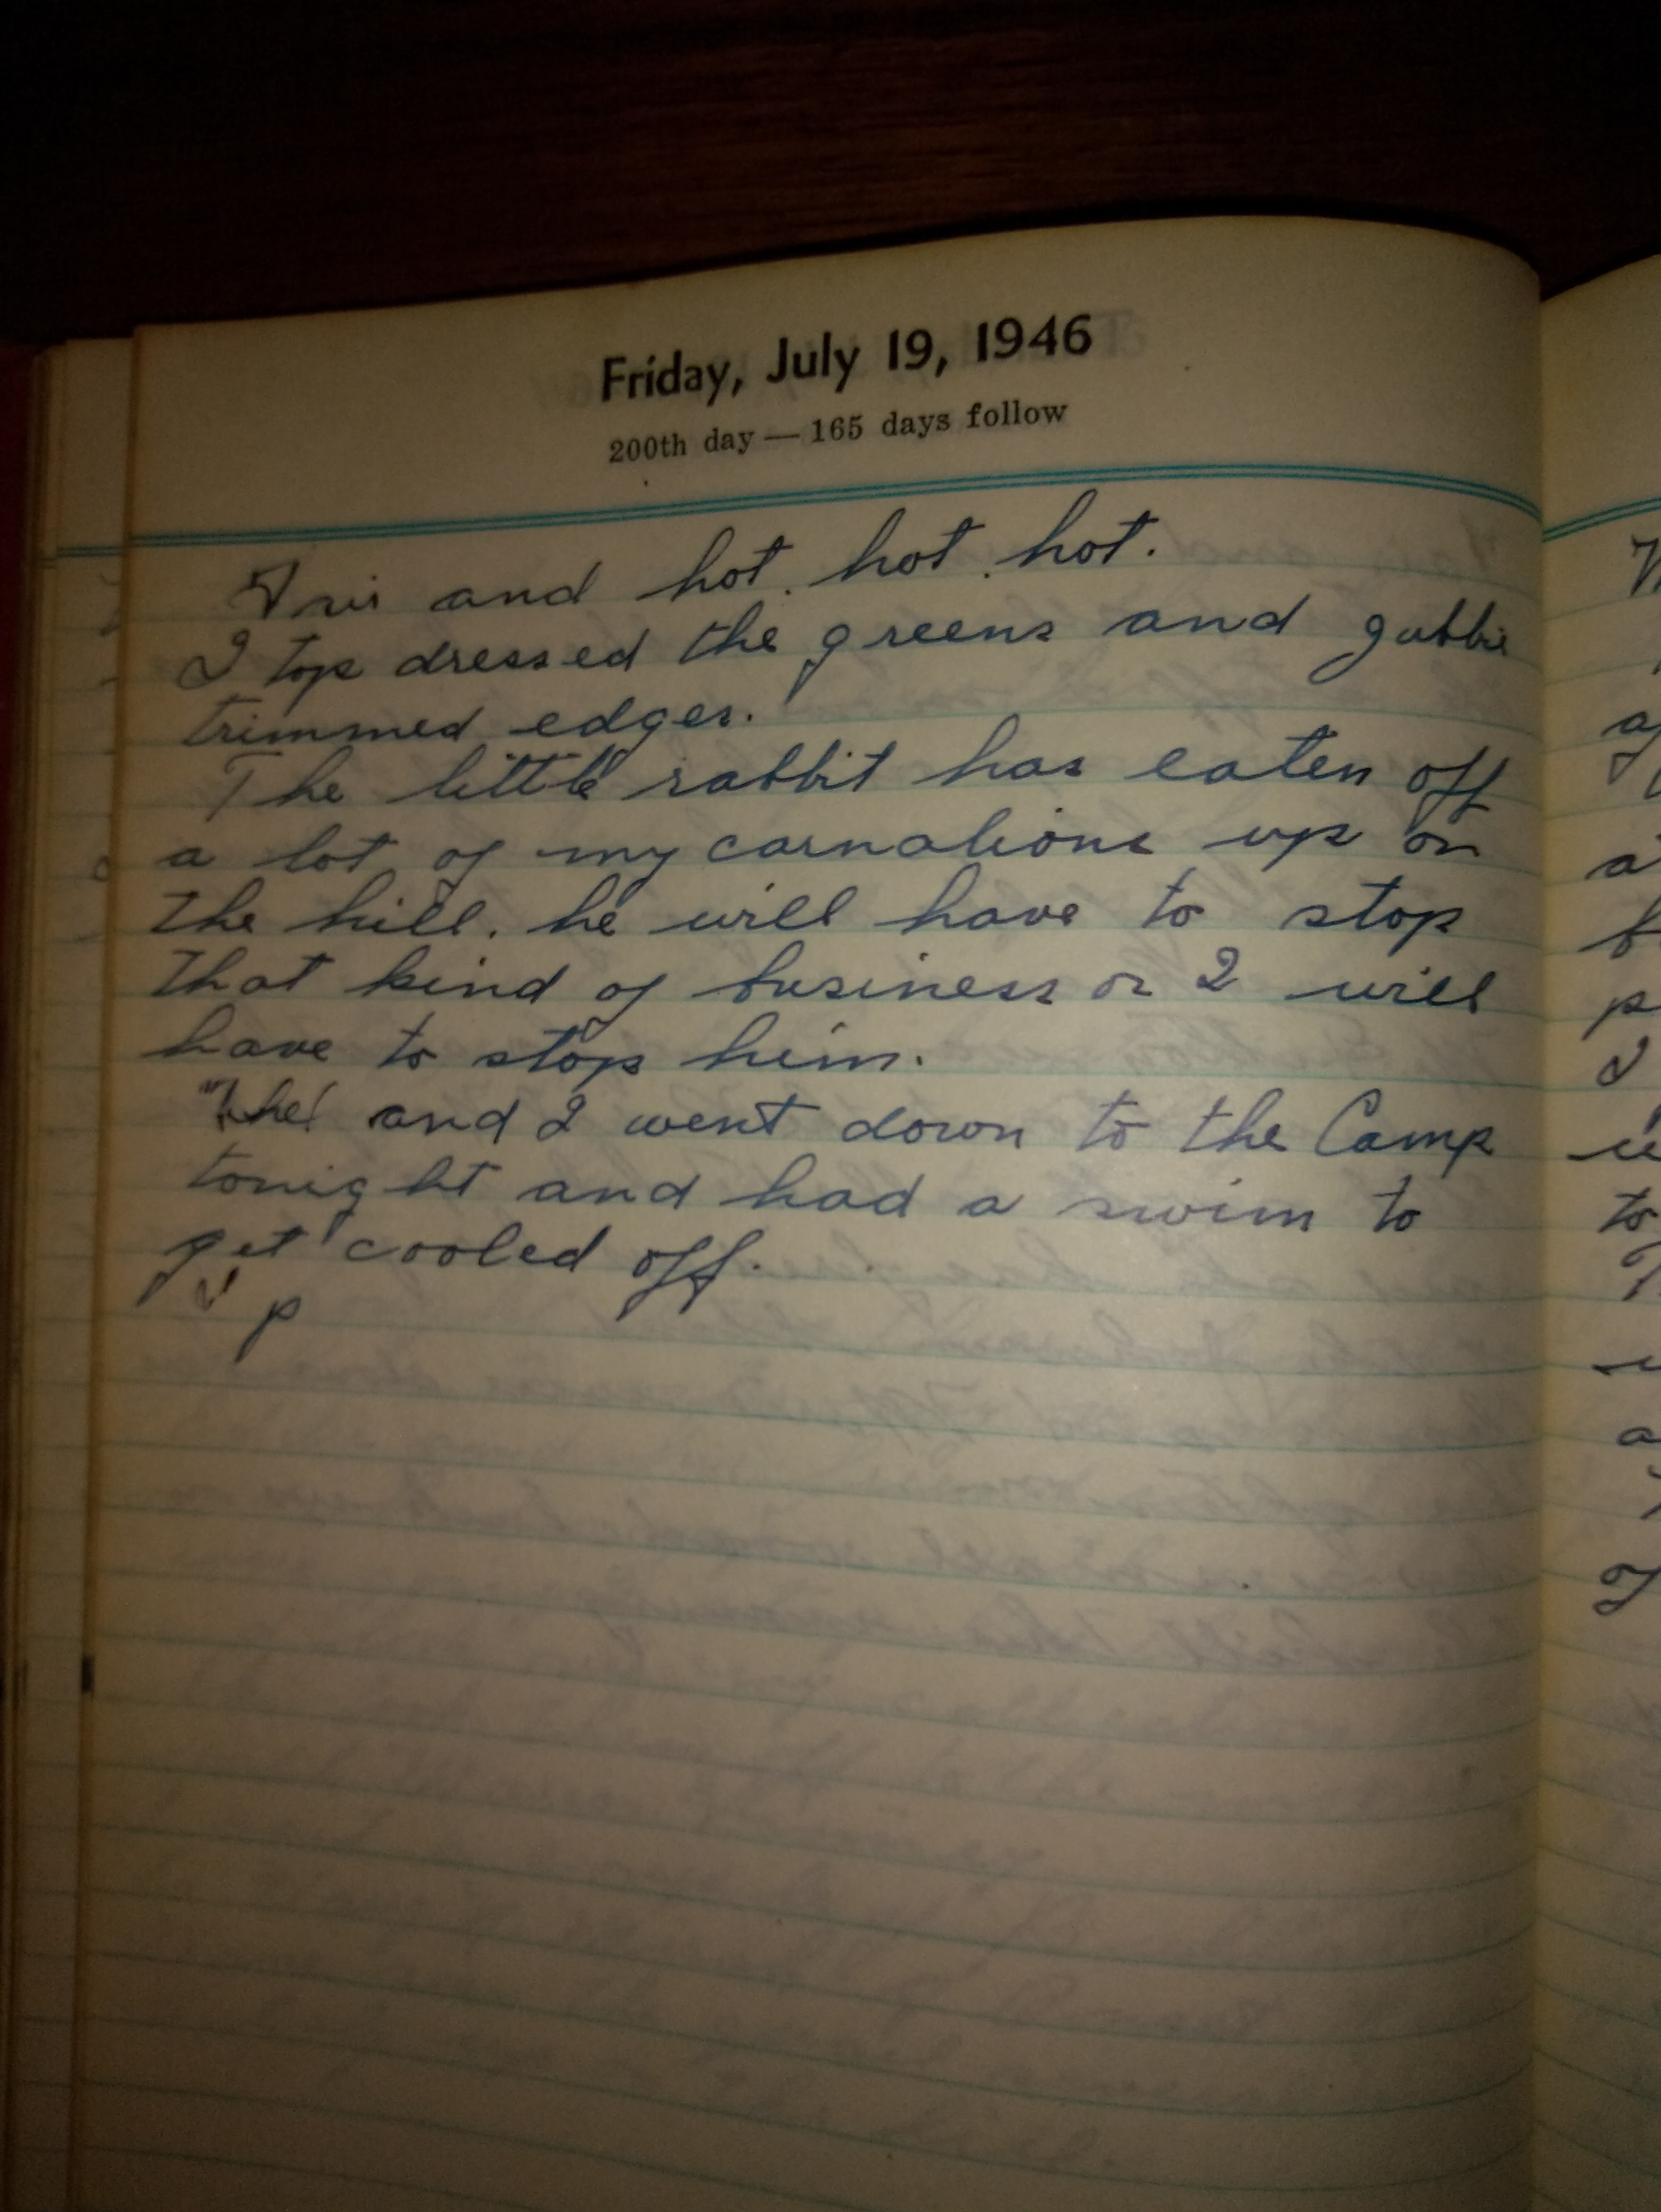 Friday, July 19, 1946
200th day — 165 days follow
and hot. hot. hot.
I top dressed the greens and
trimmed edges.
The little rabbit has eaten off
a lot of my carnations up on
the hill. he will have to stop
that kind of business or I will
have to stop him.
and I went down to the Camp
tonight and had a swim to
get cooled off.